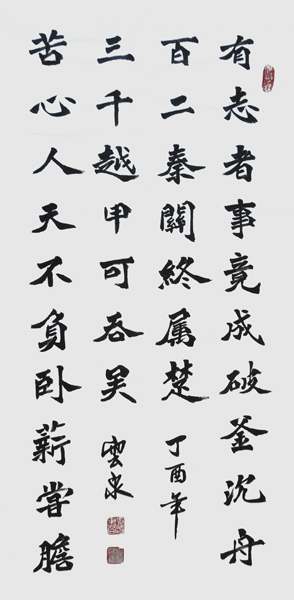 有志者事竟成破釜沉舟
百二秦關終属楚
丁酉年
苦心人天不負卧薪嘗膽
三千越甲可吞吴
雲泉